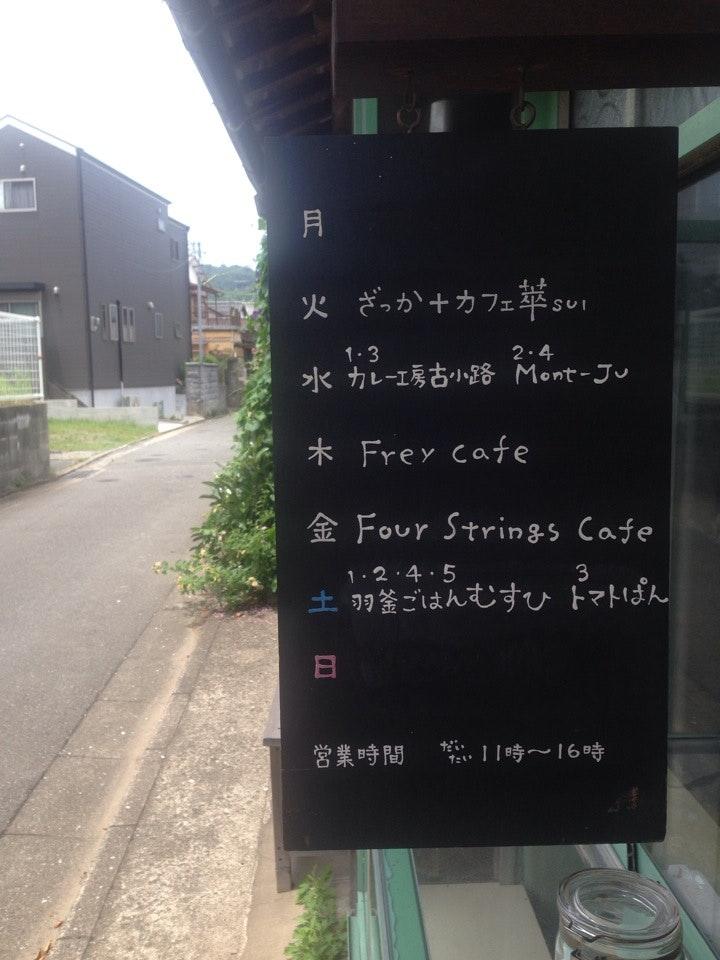 月
火 ざっか+カフェ萃sui
1・3 2・4
水 カレー工房古小路 Mont-Ju
木 Frey cafe
金 Four Strings Cafe
1・2・4・5 3
土 羽釜ごはんむすひ トマトぱん
日
営業時間 だいたい 11時〜16時